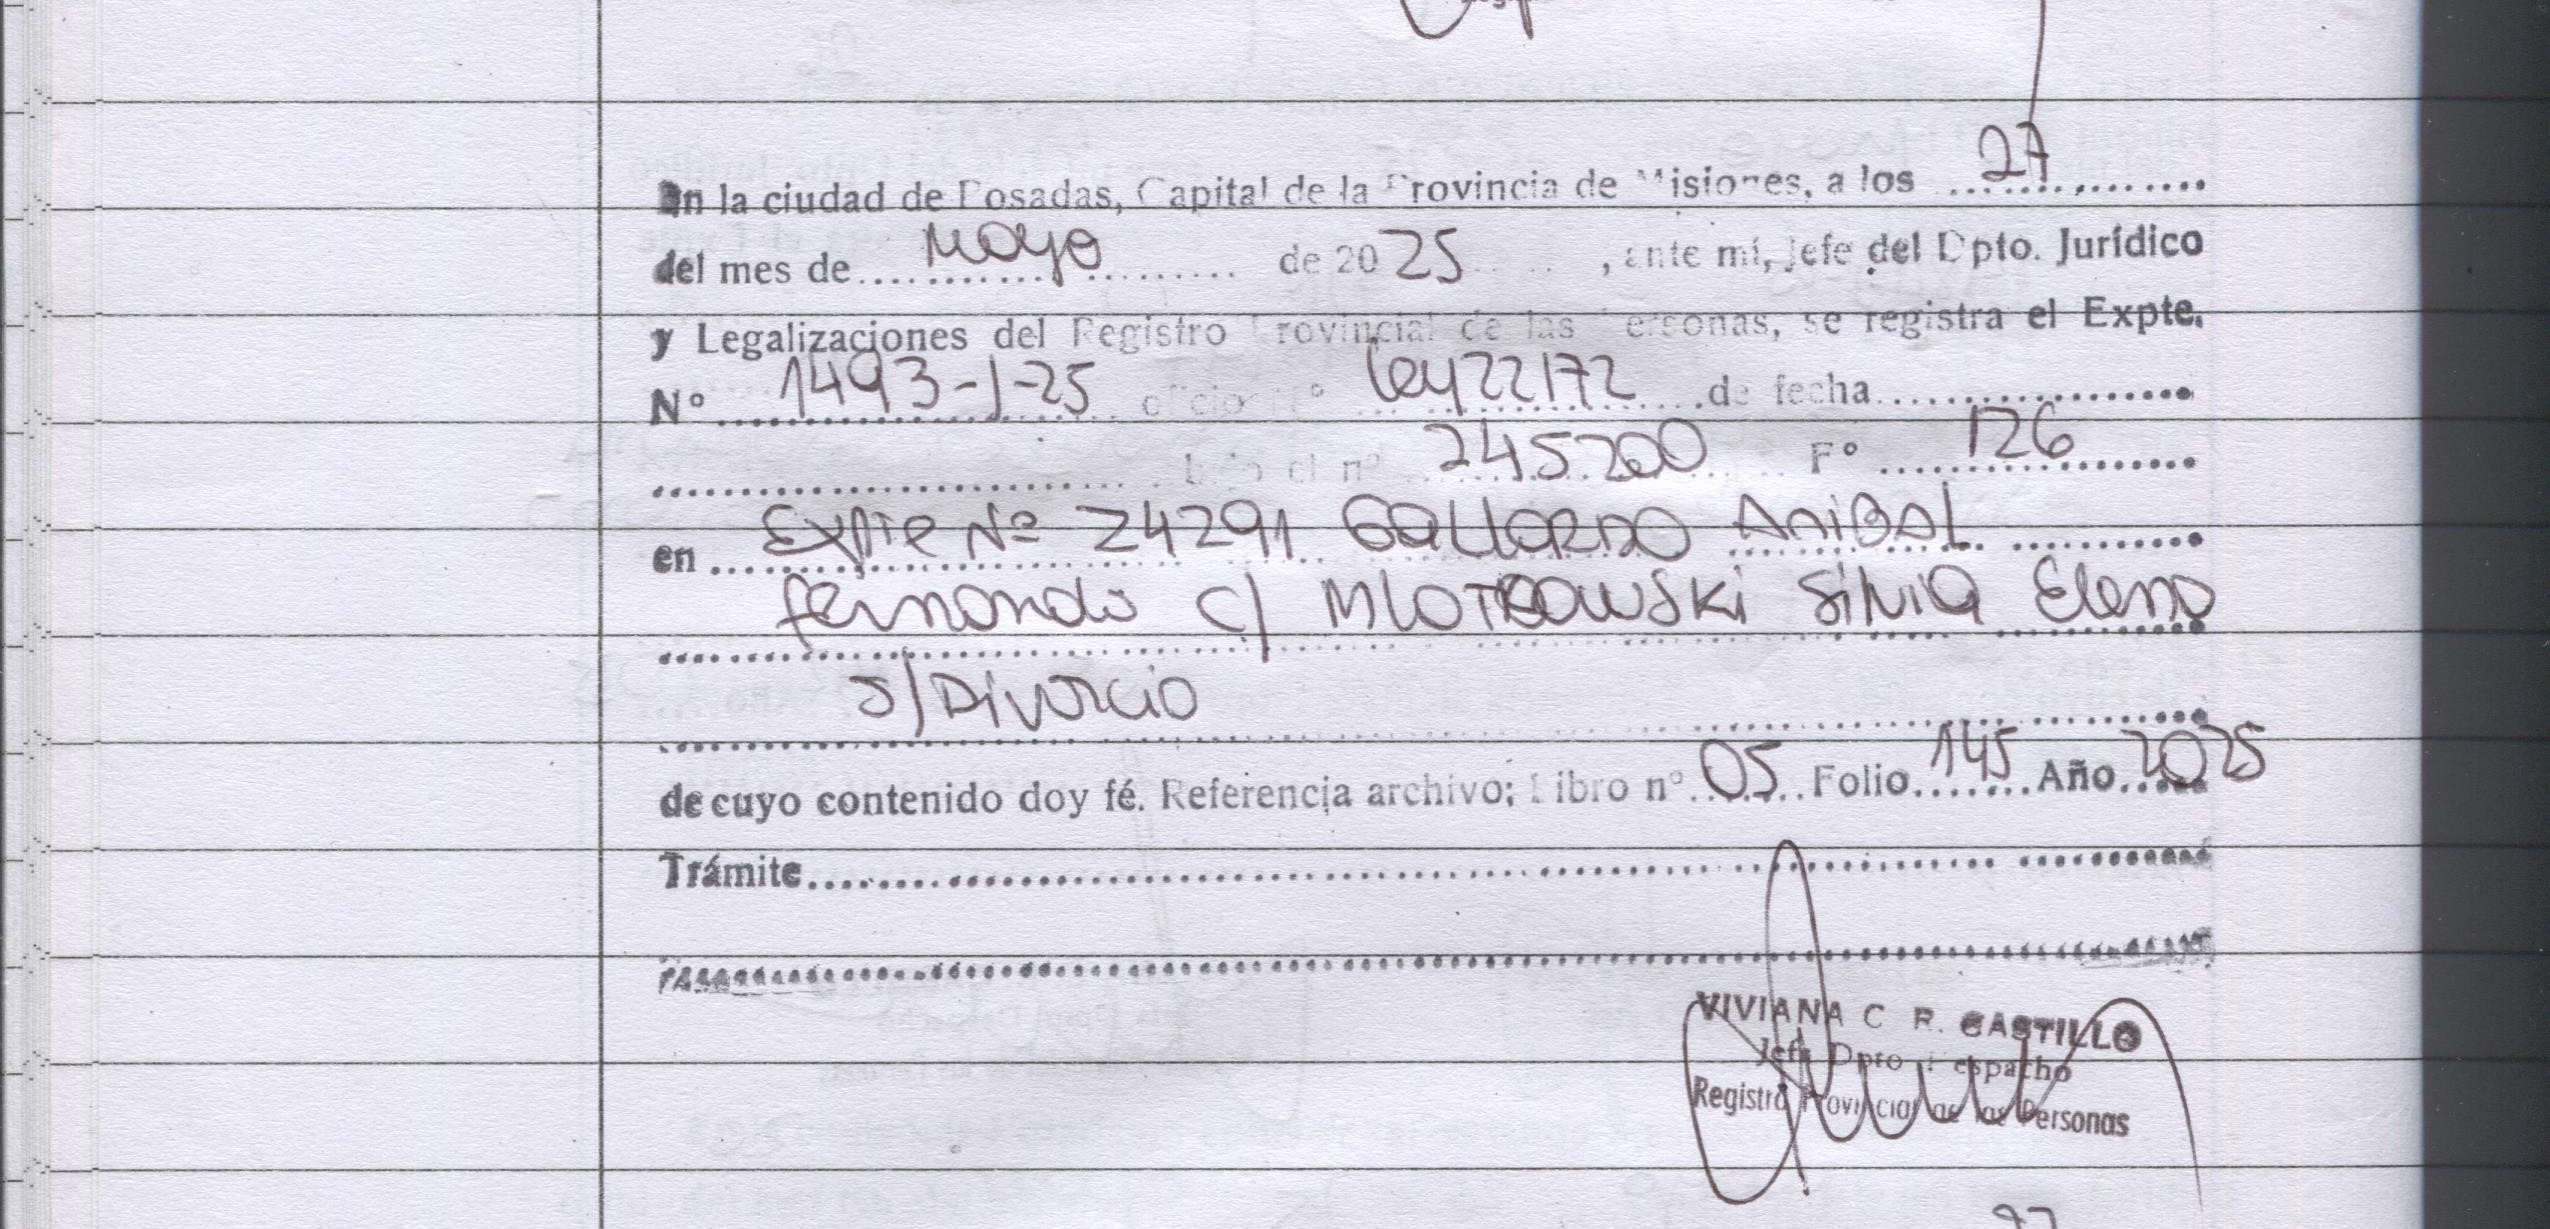 En la ciudad de Posadas, Capital de la Provincia de Misiones, a los 27
del mes de Mayo de 2025, ante mí, Jefe del Dpto. Jurídico
y Legalizaciones del Registro Provincial de las Personas, se registra el Expte.
Nº 1493-J-25 oficio nº ley 22172 de fecha
bajo el nº 245200 Fº 126
en Expte Nº 24291 Gallardo Anibal
fernando c/ Mlotkowski Silvia Elena
s/Divorcio
de cuyo contenido doy fé. Referencia archivo; Libro nº 05 Folio 145 Año 2025
Trámite
VIVIANA C R. CASTILLO
Jefe Dpto Despacho
Registro Provincial de las Personas